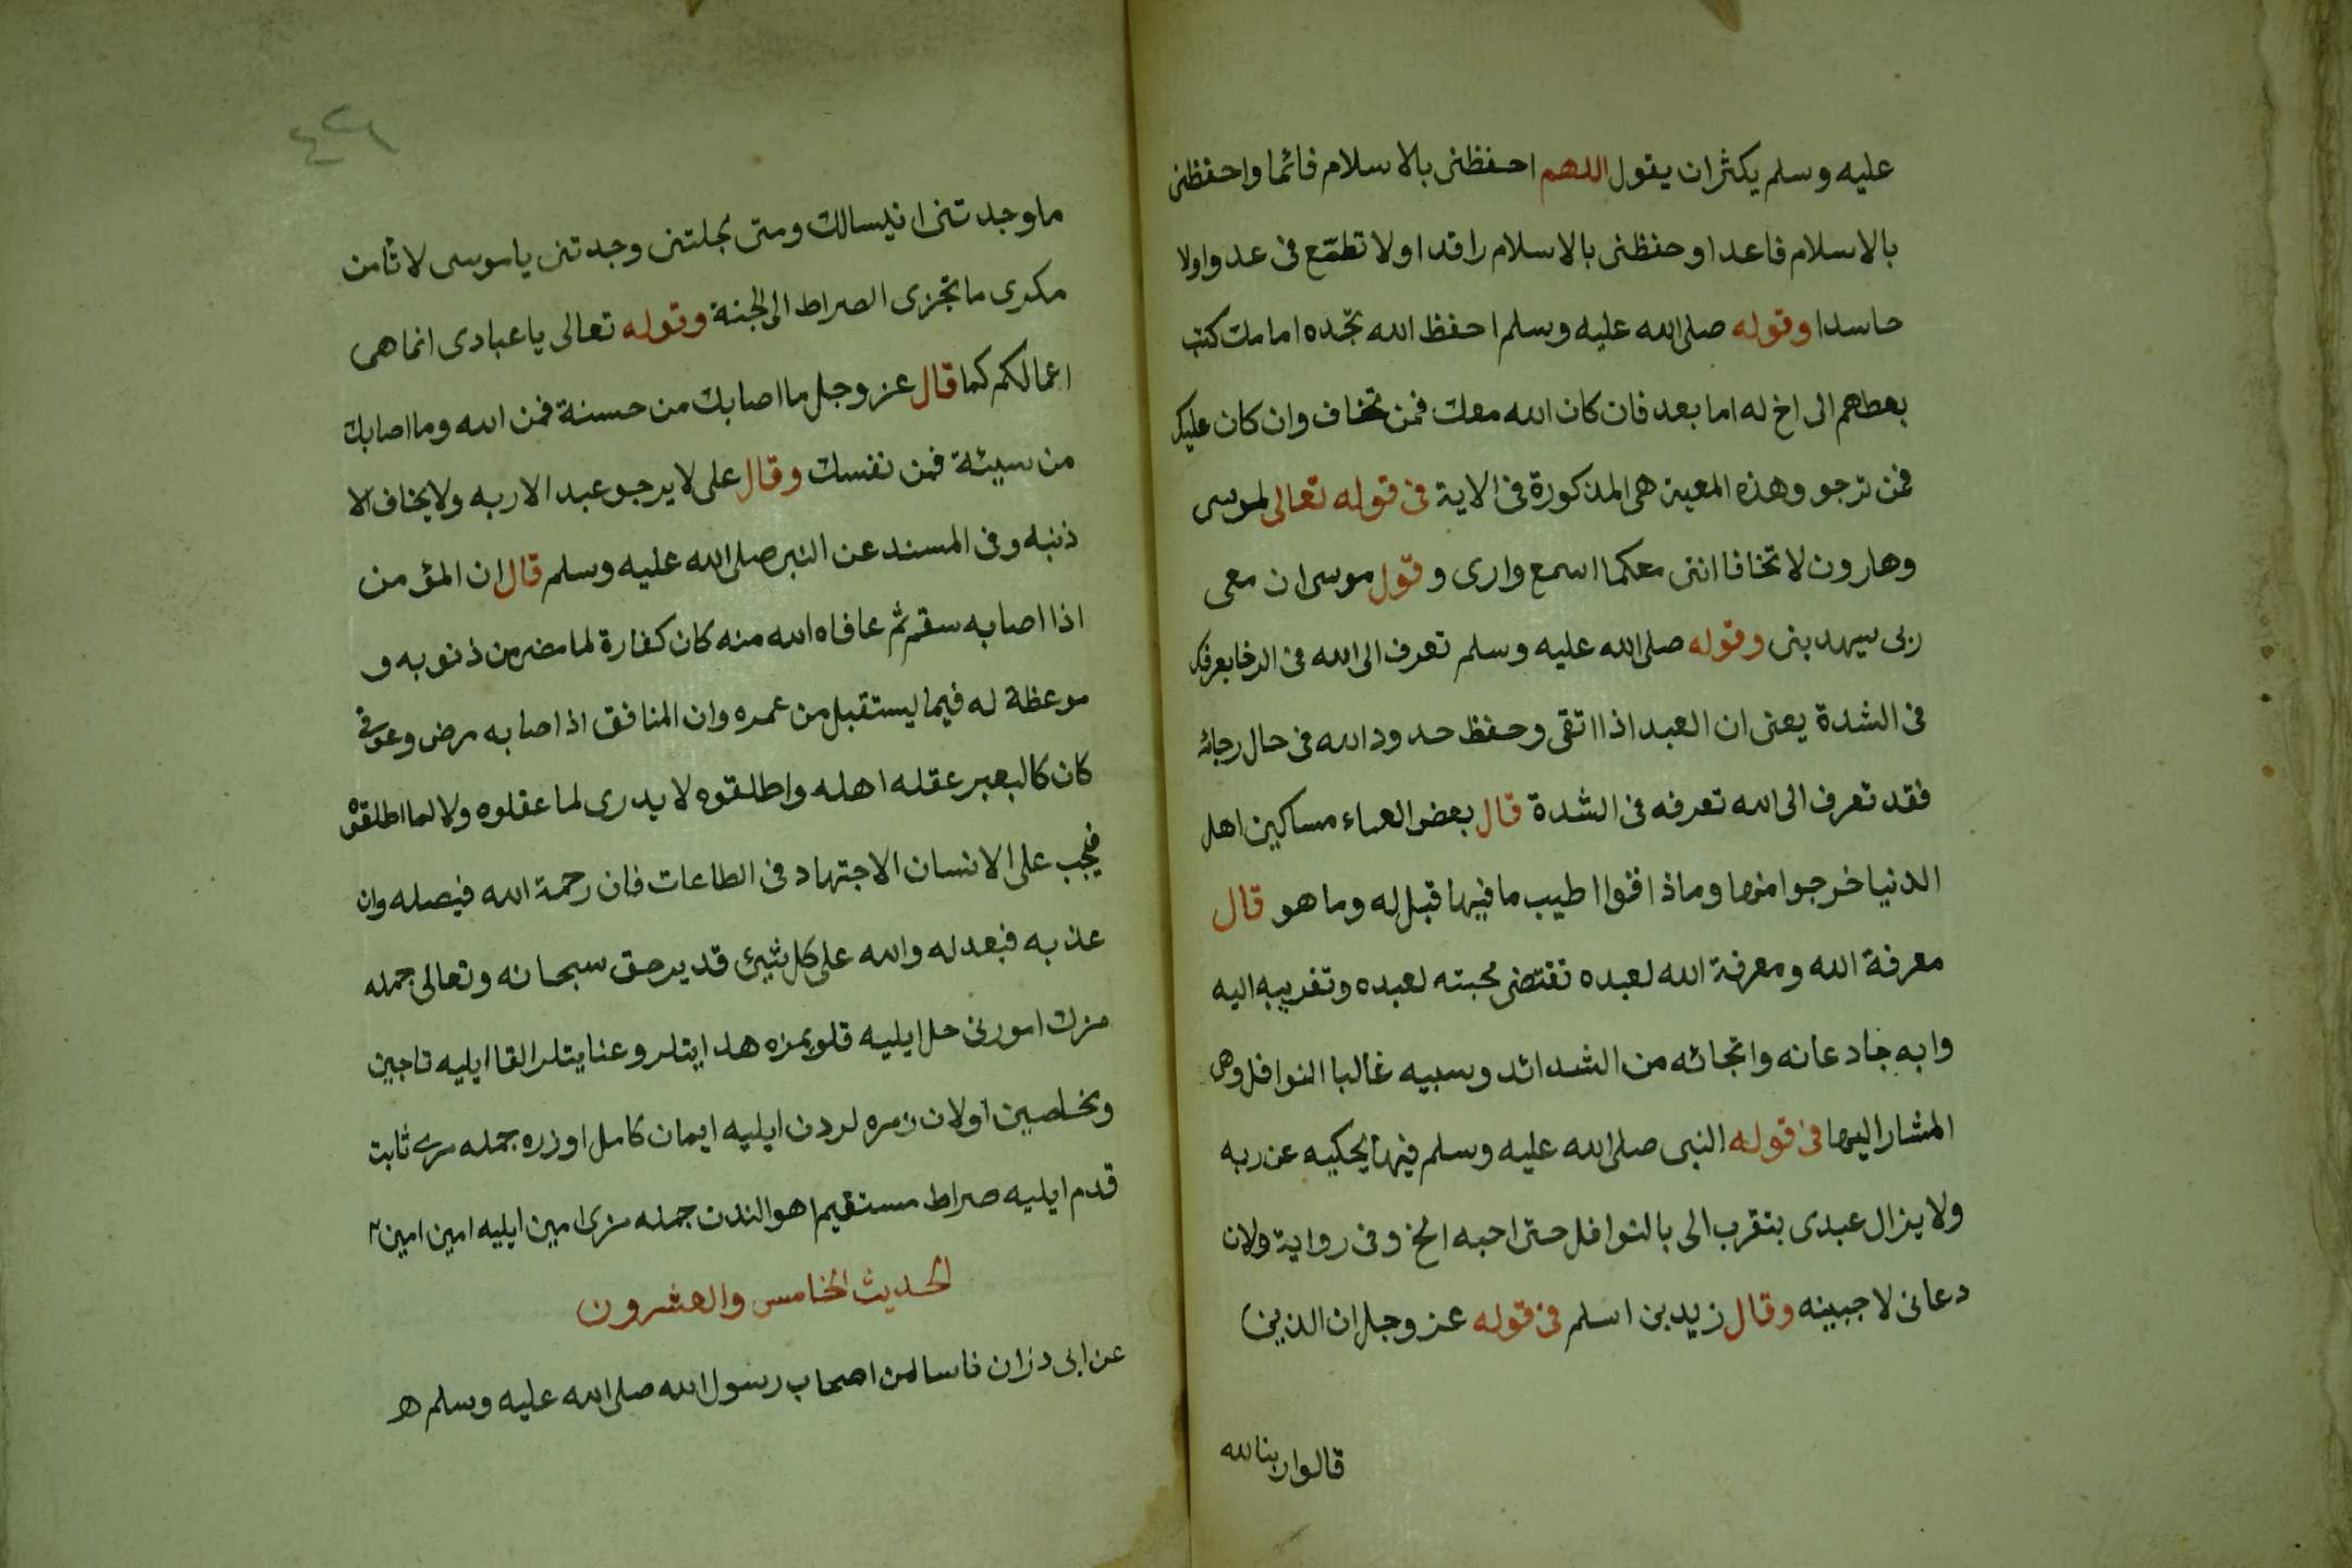 عليه وسلم يكثر ان يقول اللهم احفظنى بالاسلام قائما واحفظنى
بالاسلام قاعدا وحفظنى بالاسلام راقدا ولا تطمّع فى عدوا ولا
حاسدا وقوله صلى الله عليه وسلم احفظ الله تجّده امامك كتب
بعطهم الى اخ له اما بعد فان كان الله معك فمن تخاف وان كان عليك
فمن ترجو وهذه المعين هى المذكورة فى الاية فى قوله تعالى لموسى
وهارون لا تخافا اننى معكما اسمع وارى وقول موسى ان معى
ربى سيهدينى وقوله صلى الله عليه وسلم تعرف الى الله فى الرخا يعرفك
فى الشدة يعنى ان العبد اذا اتقى وحفظ حدود الله فى حال رجائه
فقد تعرف الى الله تعرفه فى الشدة قال بعض العلماء مساكين اهل
الدنيا خرجوا منها وماذاقوا اطيب ما فيها قبل له وما هو قال
معرفة الله ومعرفة الله لعبده تقتضى محبته لعبده وتقريبه اليه
وابه جاد عانه وانجائه من الشدائد وسبيه غالبا النوافل وهى
المشار اليها فى قوله النبى صلى الله عليه وسلم فيها يحكيه عن ربه
ولا يزال عبدى بتقرب الى بالنوافل حتى احبه الخ وفى رواية ولان
دعانى لاجبينه وقال زيد بن اسلم فى قوله عز وجل ان الذين
قالوا ربنا الله
٤٢٦
ما وجدتنى ان يسالك ومتى بجلتنى وجدتنى يا موسى لا تامن
مكرى ما تجزى الصراط الى الجنة وقوله تعالى يا عبادى انما هى
اعمالكم كما قال عز وجل ما اصابك من حسنة فمن الله وما اصابك
من سيئة فمن نفسك وقال على لا يرجو عبد الا ربه ولا يخاف الا
ذنبه وفى المسند عن النبى صلى الله عليه وسلم قال ان المؤمن
اذا اصابه سقم ثم عافاه الله منه كان كفارة لما مضى من ذنوبه و
موعظة له فيما يستقبل من عمره وان المنافق اذ اصابه مرض وعوفى
كان كالبعير عقله اهله واطلقوه لا يدرى لما عقلوه ولا لما اطلقوه
فيجب على الانسان الاجتهاد فى الطاعات فان رحمة الله فيصله وان
عذبه فبعدله والله على كل شيئ قدير حق سبحانه وتعالى جمله
مزك امورنى حل ايليه قلوبمزه هدايتلر وعنايتلر القا ايليه ناجين
ومخلصين اولان زمره لردن ايليه ايمان كامل اوزره جمله مزى ثابت
قدم ايليه صراط مستقيم اهوالندن جمله مزى امين ايليه امين امين
الحديث الخامس والعشرون
عن ابى ذر ان ناسا من اصحاب رسول الله صلى الله عليه وسلم